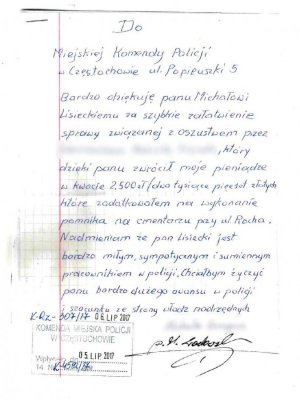 Do
Miejskiej Komendy Policji
w Częstochowie ul. Popiełuszki 5
Bardzo dziękuję panu Michałowi
Lisieckiemu za szybkie załatwienie
sprawy związanej z oszustwem przez
, który
dzięki panu zwrócił moje pieniądze
w kwocie 2,500 zł/dwa tysiące pięćset złotych
które zadatkowałem na wykonanie
pomnika na cmentarzu przy ul. Rocha.
Nadmieniam że pan Lisiecki jest
bardzo miłym, sympatycznym i sumiennym
pracownikiem w policji. Chciałbym życzyć
panu bardzo dużego awansu w policji
i szacunku ze strony władz nadrzędnych
06 LIP 2017
KOMENDA MIEJSKA POLICJI
W CZĘSTOCHOWIE
05 LIP 2017